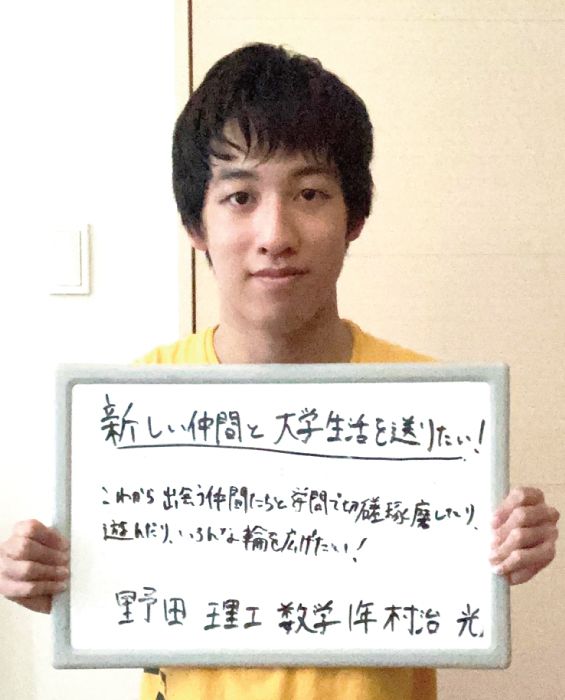 新しい仲間と 大学生活を送りたい!
これから出会う仲間たちと学問で切磋琢磨したり、
遊んだり、いろんな輪を広げたい!
野田 理工 数学1年 村治 光